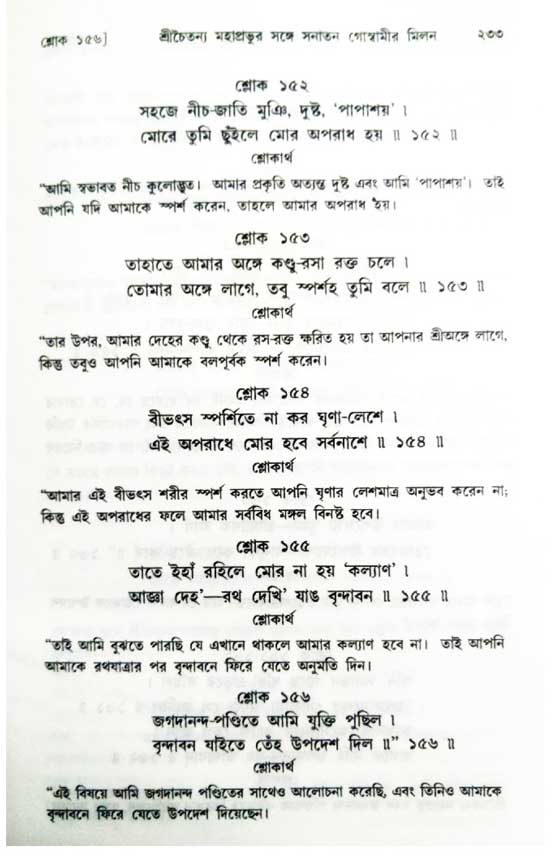 শ্লোক ১৫৬]
শ্রীচৈতন্য মহাপ্রভুর সঙ্গে সনাতন গোস্বামীর মিলন
২৩৩
শ্লোক ১৫২
সহজে নীচ-জাতি মুঞি, দুষ্ট, ‘পাপাশয়’ ।
মোরে তুমি ছুঁইলে মোর অপরাধ হয় ॥ ১৫২ ॥
শ্লোকার্থ
“আমি স্বভাবত নীচ কুলোদ্ভূত। আমার প্রকৃতি অত্যন্ত দুষ্ট এবং আমি ‘পাপাশয়’। তাই
আপনি যদি আমাকে স্পর্শ করেন, তাহলে আমার অপরাধ হয়।
শ্লোক ১৫৩
তাহাতে আমার অঙ্গে কণ্ডু-রসা রক্ত চলে ।
তোমার অঙ্গে লাগে, তবু স্পর্শহ তুমি বলে ॥ ১৫৩ ॥
শ্লোকার্থ
“তার উপর, আমার দেহের কণ্ডু থেকে রস-রক্ত ক্ষরিত হয় তা আপনার শ্রীঅঙ্গে লাগে,
কিন্তু তবুও আপনি আমাকে বলপূর্বক স্পর্শ করেন।
শ্লোক ১৫৪
বীভৎস স্পর্শিতে না কর ঘৃণা-লেশে ।
এই অপরাধে মোর হবে সর্বনাশে ॥ ১৫৪ ॥
শ্লোকার্থ
“আমার এই বীভৎস শরীর স্পর্শ করতে আপনি ঘৃণার লেশমাত্র অনুভব করেন না;
কিন্তু এই অপরাধের ফলে আমার সর্ববিধ মঙ্গল বিনষ্ট হবে।
শ্লোক ১৫৫
তাতে ইহাঁ রহিলে মোর না হয় ‘কল্যাণ’ ।
আজ্ঞা দেহ’—রথ দেখি’ যাঙ বৃন্দাবন ॥ ১৫৫ ॥
শ্লোকার্থ
“তাই আমি বুঝতে পারছি যে এখানে থাকলে আমার কল্যাণ হবে না। তাই আপনি
আমাকে রথযাত্রার পর বৃন্দাবনে ফিরে যেতে অনুমতি দিন।
শ্লোক ১৫৬
জগদানন্দ-পণ্ডিতে আমি যুক্তি পুছিল ।
বৃন্দাবন যাইতে তেঁহ উপদেশ দিল ॥” ১৫৬ ॥
শ্লোকার্থ
“এই বিষয়ে আমি জগদানন্দ পণ্ডিতের সাথেও আলোচনা করেছি, এবং তিনিও আমাকে
বৃন্দাবনে ফিরে যেতে উপদেশ দিয়েছেন।